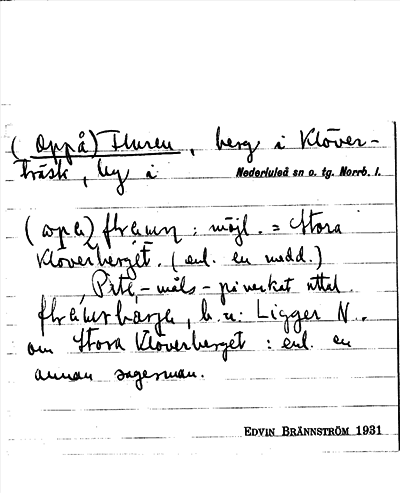 (Oppå) Fluren, berg i Klöver-
träsk, by i Nederluleå sn o. tg. Norrb. l.
: möjl. = Stora
Klöverberget. (enl. en medd.)
Pite-måls-påverkat uttal
b. u: Ligger N.
om Stora Klöverberget : enl. en
annan sagesman.
EDVIN BRÄNNSTRÖM 1931